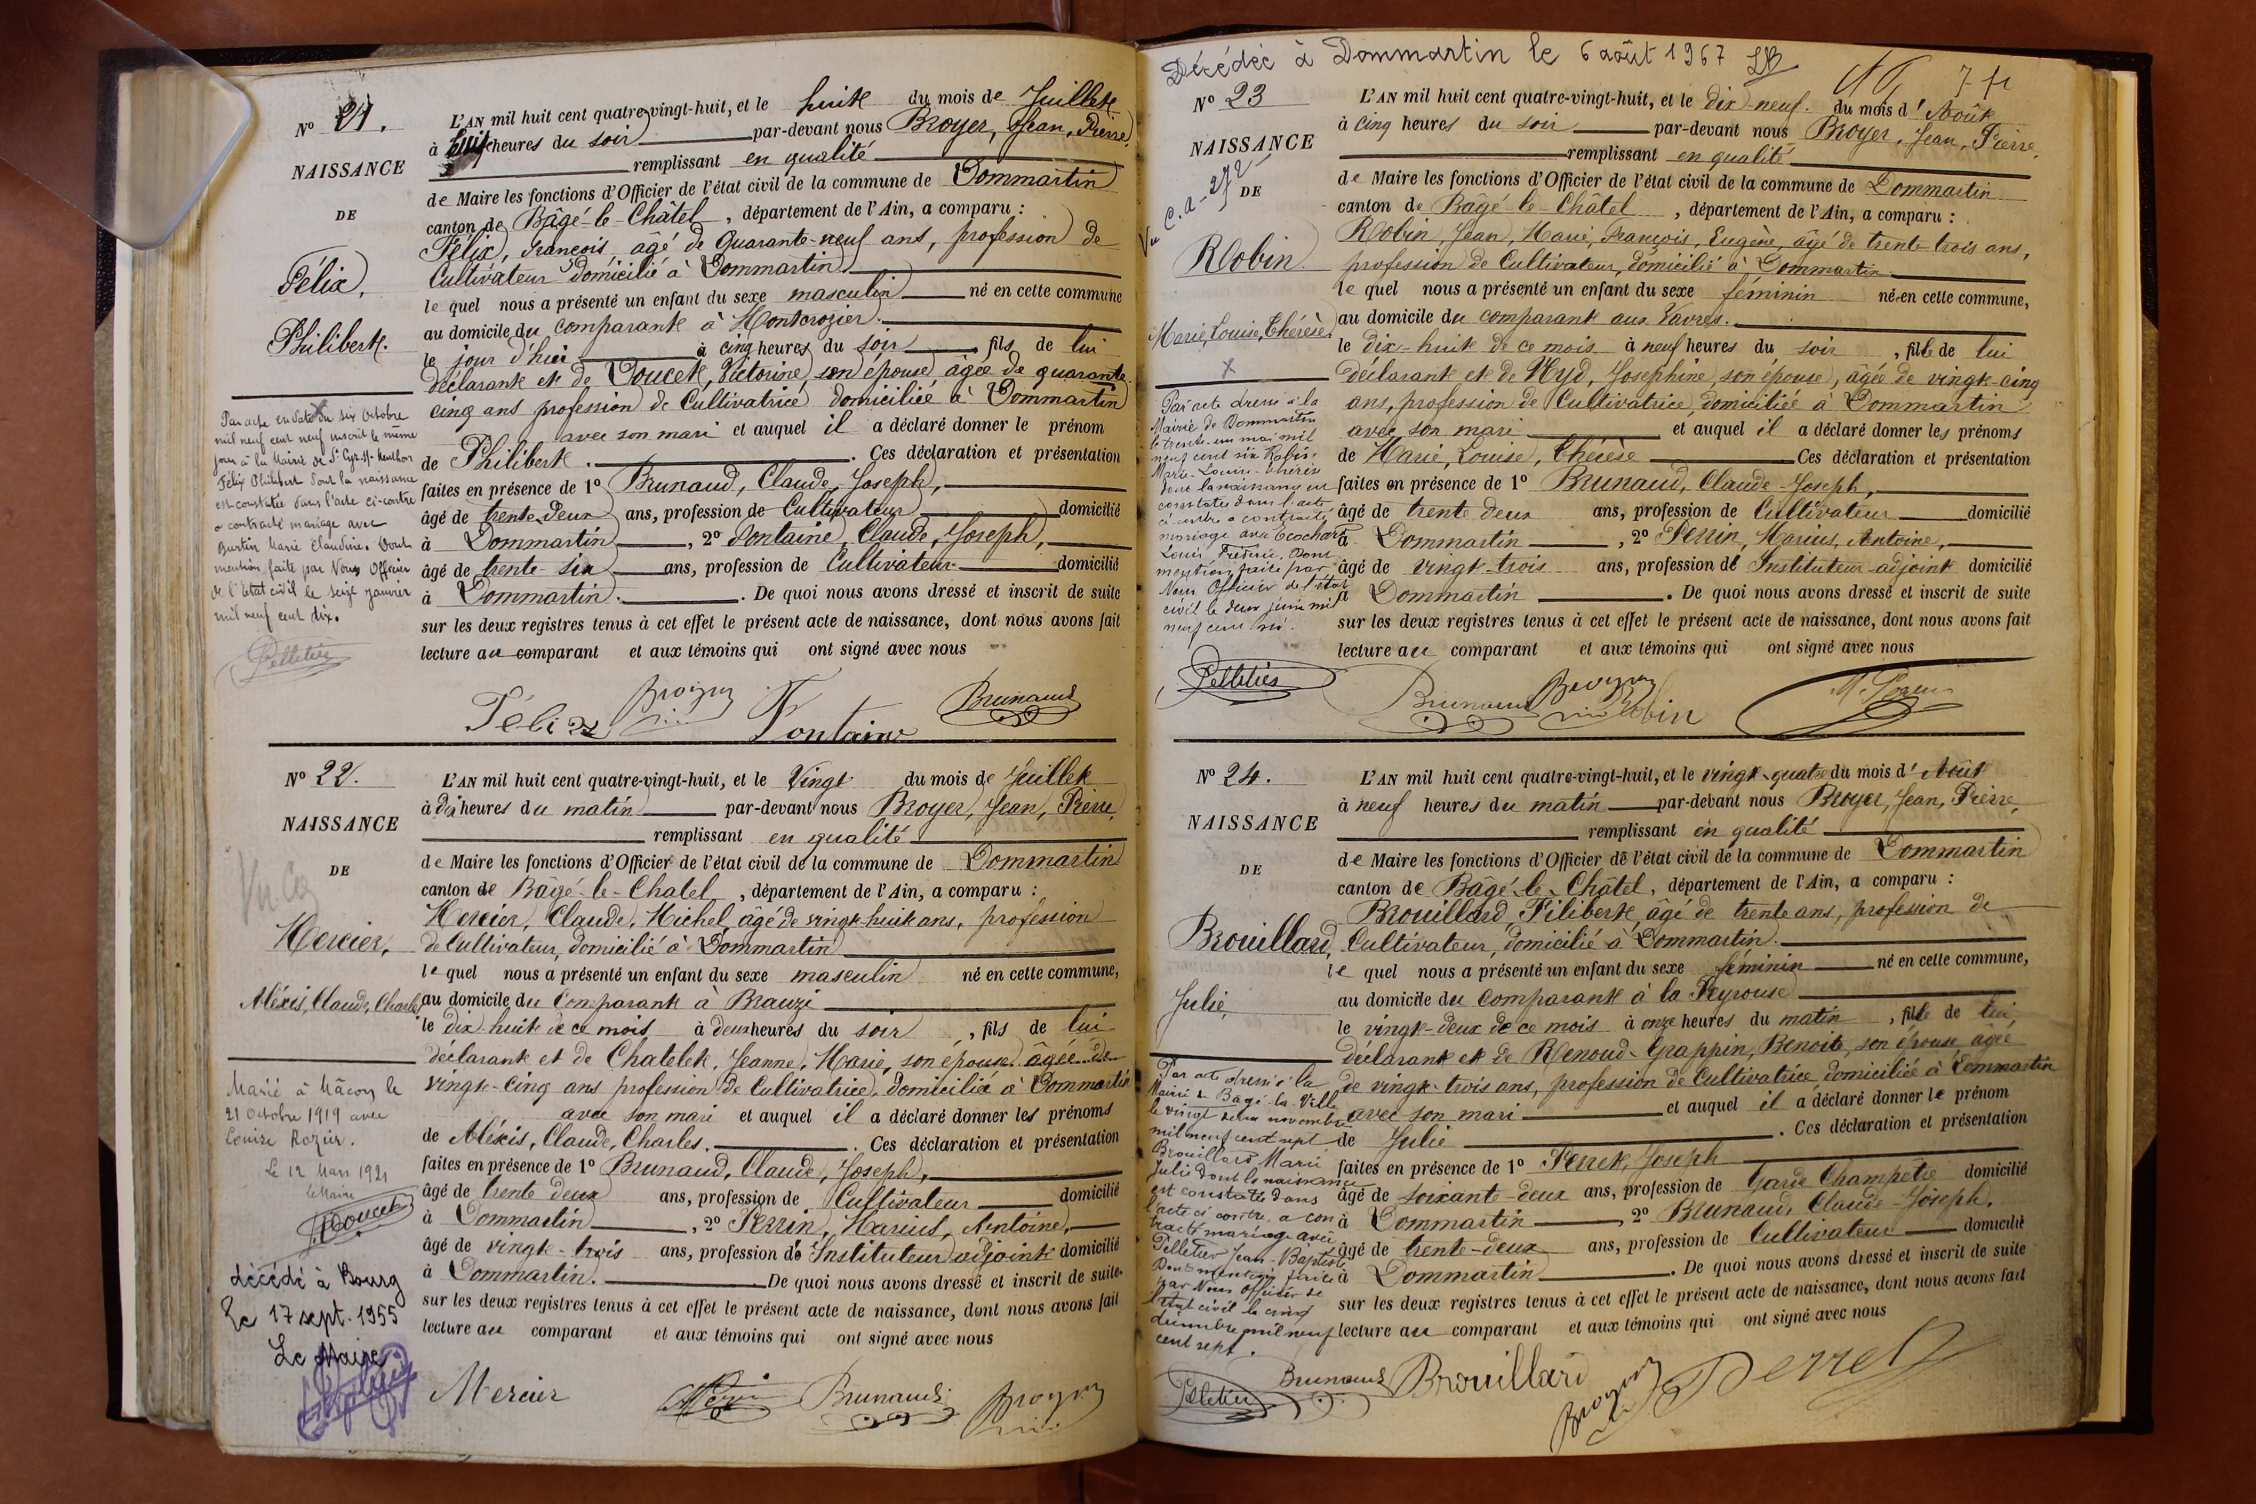 Nº 21.
NAISSANCE
DE
Félix,
Philibert.
L'AN mil huit cent quatre-vingt-huit, et le huit du mois de Juillet
à huit heures du soir par-devant nous Broyer, Jean, Pierre,
remplissant en qualité
de Maire les fonctions d'Officier de l'état civil de la commune de Dommartin
canton de Bâgé-le-Châtel, département de l'Ain, a comparu :
Félix, François, âgé de Quarante-neuf ans, profession de
Cultivateur domicilié à Dommartin.
le quel nous a présenté un enfant du sexe masculin né en cette commune
au domicile du comparant à Montcrozier.
le jour d'hier à cinq heures du soir fils de lui
déclarant et de Doucet, Victorine son épouse âgée de quarante
cinq ans profession de Cultivatrice domiciliée à Dommartin
avec son mari et auquel il a déclaré donner le prénom
de Philibert. Ces déclaration et présentation
faites en présence de 1º Brunaud, Claude, Joseph,
âgé de trente deux ans, profession de Cultivateur domicilié
à Dommartin, 2º Fontaine, Claude, Joseph,
âgé de trente-six ans, profession de Cultivateur domicilié
à Dommartin. De quoi nous avons dressé et inscrit de suite
sur les deux registres tenus à cet effet le présent acte de naissance, dont nous avons fait
lecture au comparant et aux témoins qui ont signé avec nous
Par acte en date du six Octobre
mil neuf cent neuf inscrit le même
jour à la Mairie de St Cyr-s-Menthon
Félix Philibert dont la naissance
est constatée dans l'acte ci-contre
a contracté mariage avec
Burtin Marie Claudine. Dont
mention faite par Nous Officier
de l'état civil le seize janvier
mil neuf cent dix.
Pelletier
Félix Broyer Fontaine Brunaud
Nº 22.
NAISSANCE
DE
Mercier,
Aléxis, Claude, Charles
L'AN mil huit cent quatre-vingt-huit, et le Vingt du mois de Juillet
à dix heures du matin par-devant nous Broyer, Jean, Pierre,
remplissant en qualité
de Maire les fonctions d'Officier de l'état civil de la commune de Dommartin
canton de Bâgé-le-Chatel, département de l'Ain, a comparu :
Mercier, Claude, Michel, âgé de vingt-huit ans, profession
de Cultivateur, domicilié à Dommartin
le quel nous a présenté un enfant du sexe masculin né en cette commune,
au domicile du Comparant à Brauzi
le dix-huit de ce mois à deux heures du soir, fils de lui
déclarant et de Chatelet, Jeanne, Marie, son épouse âgée de
vingt-cinq ans profession de Cultivatrice, domiciliée à Dommartin
avec son mari et auquel il a déclaré donner les prénoms
de Aléxis, Claude, Charles. Ces déclaration et présentation
faites en présence de 1º Brunaud, Claude, Joseph,
âgé de trente deux ans, profession de Cultivateur domicilié
à Dommartin, 2º Perrin, Marius, Antoine,
âgé de vingt-trois ans, profession de Instituteur adjoint domicilié
à Dommartin. De quoi nous avons dressé et inscrit de suite
sur les deux registres tenus à cet effet le présent acte de naissance, dont nous avons fait
lecture au comparant et aux témoins qui ont signé avec nous
Marié à Mâcon le
21 Octobre 1919 avec
Louise Rozier.
Le 12 Mars 1921
le Maire
Doucet
décédé à Bourg
le 17 sept. 1955
Le Maire
Mercier Brunaud Broyer
Décédée à Dommartin le 6 août 1967
Nº 23
NAISSANCE
DE
Robin
Marie, Louise, Thérèse
L'AN mil huit cent quatre-vingt-huit, et le dix-neuf du mois d'Août
à cinq heures du soir par-devant nous Broyer, Jean, Pierre,
remplissant en qualité
de Maire les fonctions d'Officier de l'état civil de la commune de Dommartin
canton de Bâgé-le-Châtel, département de l'Ain, a comparu :
Robin Jean, Marie, François, Eugène, âgé de trente-trois ans,
profession de Cultivateur, domicilié à Dommartin
le quel nous a présenté un enfant du sexe féminin né en cette commune,
au domicile du comparant aux Vavres.
le dix-huit de ce mois à neuf heures du soir, fille de lui
déclarant et de Myd, Josephine, son épouse, âgée de vingt-cinq
ans, profession de Cultivatrice, domiciliée à Dommartin
avec son mari et auquel il a déclaré donner les prénoms
de Marie, Louise, Thérèse Ces déclaration et présentation
faites en présence de 1º Brunaud, Claude-Joseph,
âgé de trente deux ans, profession de Cultivateur domicilié
à Dommartin, 2º Perrin, Marius, Antoine,
âgé de vingt-trois ans, profession de Instituteur-adjoint domicilié
à Dommartin. De quoi nous avons dressé et inscrit de suite
sur les deux registres tenus à cet effet le présent acte de naissance, dont nous avons fait
lecture au comparant et aux témoins qui ont signé avec nous
Par acte dressé à la
Mairie de Dommartin
le trente-un mai mil
neuf cent six Robin
Marie-Louise-Thérèse
dont la naissance est
constatée dans l'acte
ci-contre a contracté
mariage avec Ecochard
Louis, Frédéric. Dont
mention faite par
Nous Officier de l'état
civil le deux juin mil
neuf cent six.
Pelletier
Brunaud Broyer Robin
Nº 24.
NAISSANCE
DE
Brouillard,
Julie,
L'AN mil huit cent quatre-vingt-huit, et le vingt-quatre du mois d'Août
à neuf heures du matin par-devant nous Broyer, Jean, Pierre,
remplissant en qualité
de Maire les fonctions d'Officier de l'état civil de la commune de Dommartin
canton de Bâgé-le-Châtel, département de l'Ain, a comparu :
Brouillard, Filibert, âgé de trente ans, profession de
Cultivateur, domicilié à Dommartin.
le quel nous a présenté un enfant du sexe féminin né en cette commune,
au domicile du comparant à la Peyrouse
le vingt-deux de ce mois à onze heures du matin, fille de lui
déclarant et de Renoud-Grappin, Benoite, son épouse âgée
de vingt-trois ans, profession de Cultivatrice, domiciliée à Dommartin
avec son mari et auquel il a déclaré donner le prénom
de Julie. Ces déclaration et présentation
faites en présence de 1º Perret, Joseph
âgé de soixante-deux ans, profession de Garde Champêtre domicilié
à Dommartin, 2º Brunaud, Claude-Joseph,
âgé de trente-deux ans, profession de Cultivateur domicilié
à Dommartin. De quoi nous avons dressé et inscrit de suite
sur les deux registres tenus à cet effet le présent acte de naissance, dont nous avons fait
lecture au comparant et aux témoins qui ont signé avec nous
Par acte dressé à la
Mairie de Bagé-la-Ville
le vingt deux novembre
mil neuf cent sept
Brouillard Marie
Julie dont la naissance
est constatée dans
l'acte ci contre, a con
tracté mariage avec
Pelletier Jean-Baptiste
Dont mention faite
par Nous Officier de
l'état civil le cinq
décembre mil neuf
cent sept.
Pelletier
Brunaud Brouillard Broyer Perret